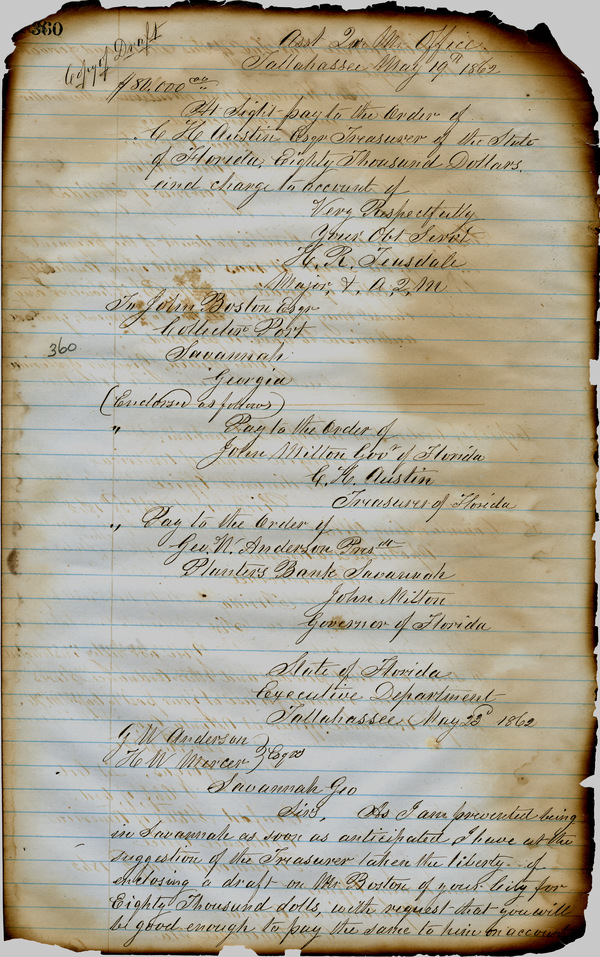 360
Copy of Draft
Asst Qr Mr Office
Tallahassee May 19th 1862
$80,000 00
At Sight pay to the Order of
C H Austin Esqr Treasurer of the State
of Florida, Eighty Thousand Dollars.
and charge to account of
Very Respectfully
Your Obt Servt
H. R. Teasdale
Major, & A, Q, M
To John Boston Esqr
Collector Port
360
Savannah
Georgia
(Endorsed as follows)
" Pay to the Order of
John Milton Govr of Florida
C, H, Austin
Treasurer of Florida
" Pay to the Order of
Geo. W. Anderson Presdt
Planters Bank Savannah
John Milton
Governor of Florida
State of Florida
Executive Department
Tallahassee May 23d 1862
G W Anderson
H W Mercer } Esqrs
Savannah Geo
Sirs, As I am prevented being
in Savannah as soon as anticipated I have at the
suggestion of the Treasurer taken the liberty of
enclosing a draft on Mr Boston of your City for
Eighty Thousand dolls, with request that you will
be good enough to pay the same to him on account